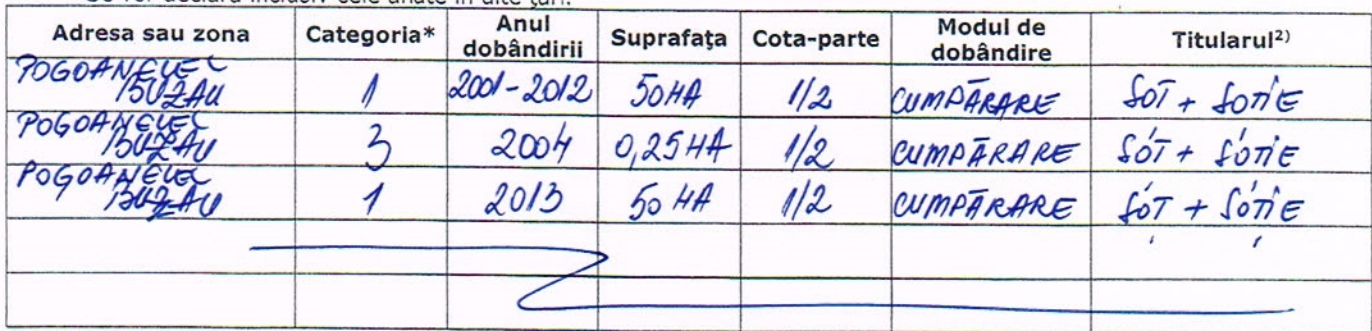 Adresa sau zona Categoria* Anul dobândirii Suprafaţa Cota-parte Modul de dobândire Titularul2)
POGOANELE
BUZAU 1 2001-2012 50HA 1/2 CUMPĂRARE SOT + SOTIE
POGOANELE
BUZAU 3 2004 0,25HA 1/2 CUMPĂRARE SOT + SOTIE
POGOANELE
BUZAU 1 2013 50 HA 1/2 CUMPĂRARE SOT + SOTIE